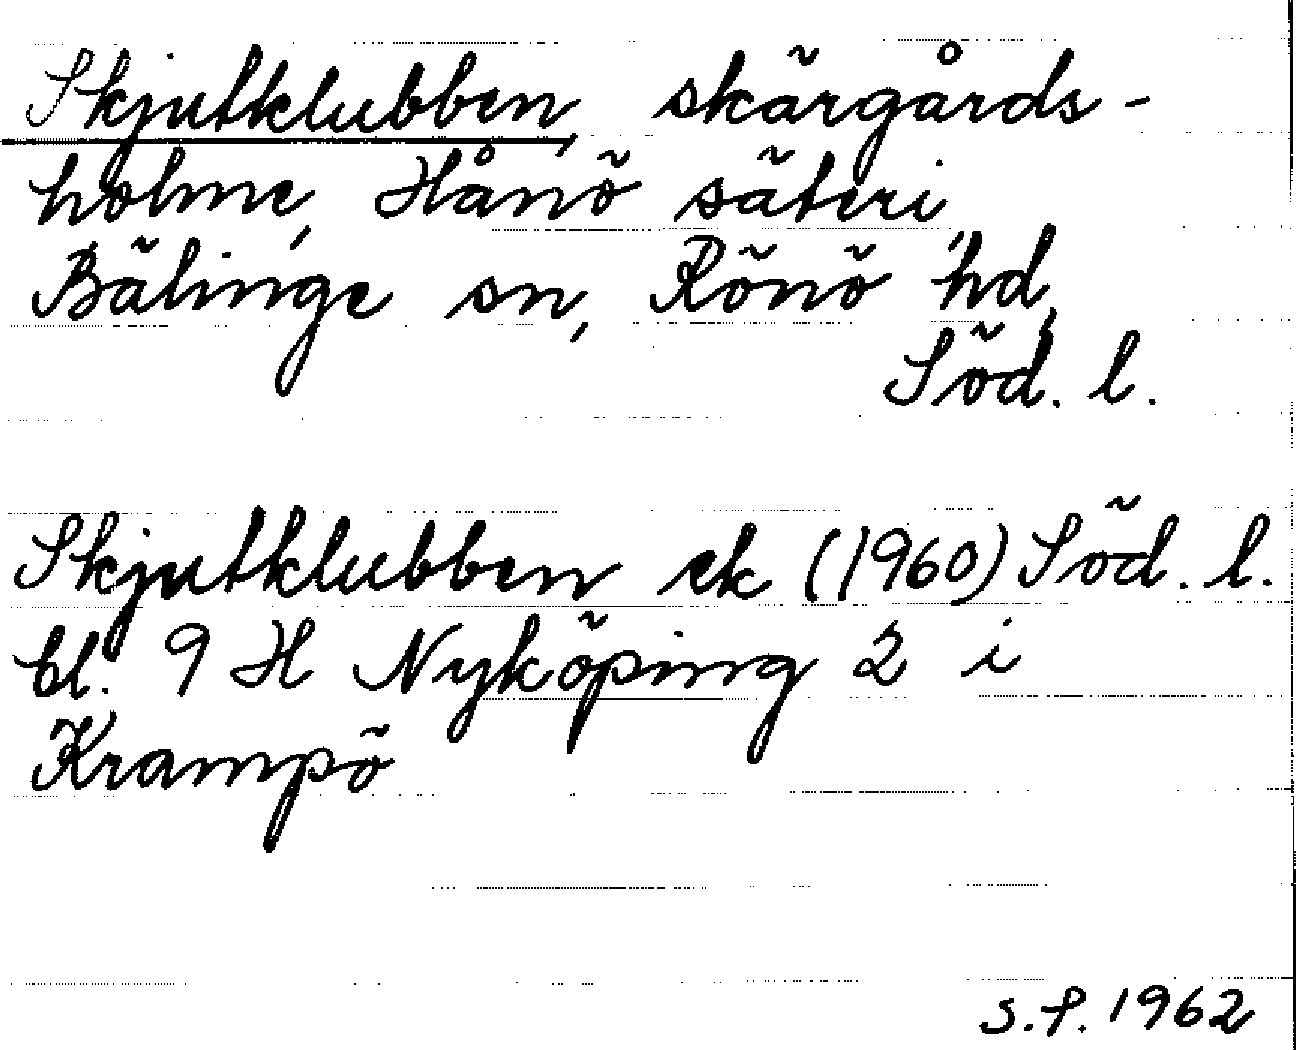 Skjutklubben, skärgårds-
holme, Hånö säteri,
Bälinge sn, Rönö hd,
Söd. l.
Skjutklubben ek (1960) Söd. l.
bl. 9 H Nyköping 2 i
Krampö
S.P. 1962